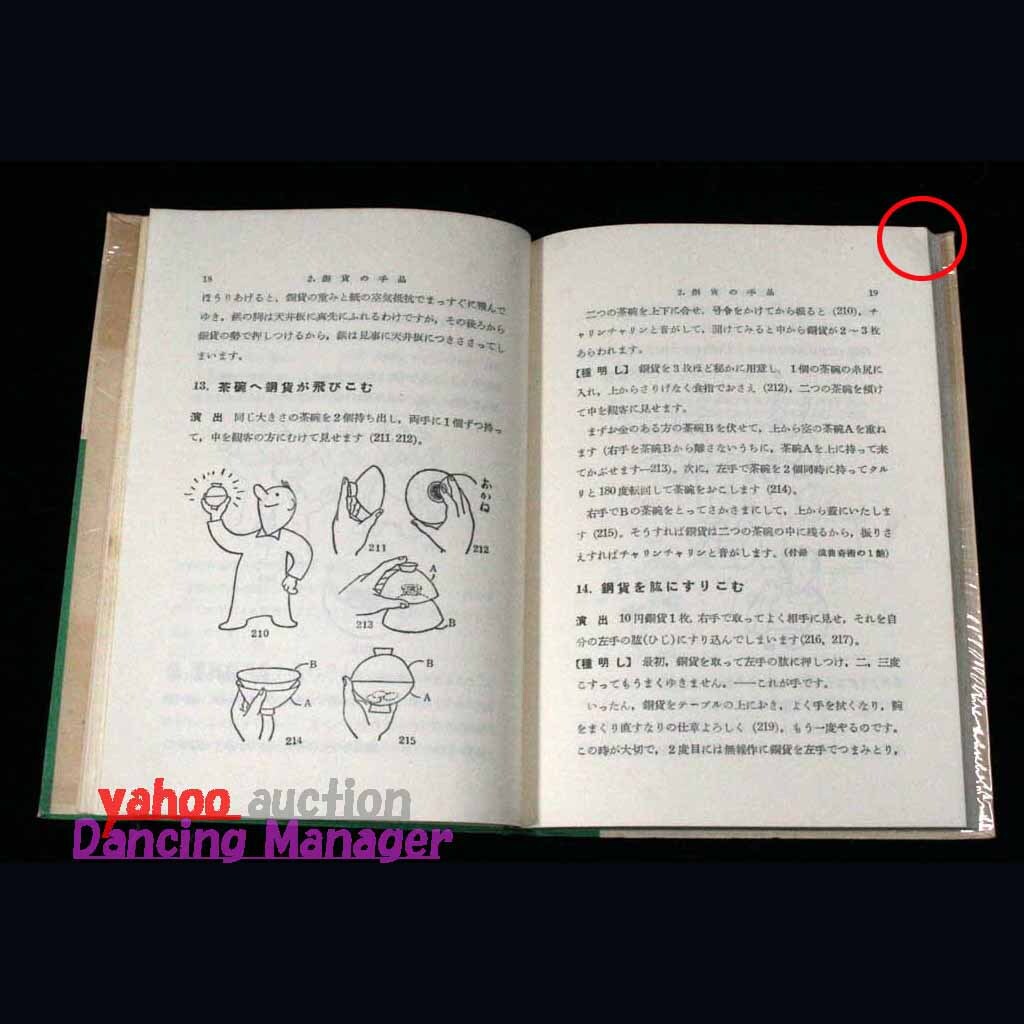 18
2. 銅貨の手品
ほうりあげると、銅貨の重みと紙の空気抵抗でまっすぐに飛んで
ゆき，鋲の間は天井板に真先にふれるわけですが，その後ろから
銅貨の勢で押しつけるから，鋲は見事に天井板につきささってし
まいます。
13. 茶碗へ銅貨が飛びこむ
演 出 同じ大きさの茶碗を2個持ち出し，両手に1個ずつ持っ
て，中を観客の方にむけて見せます（211. 212）。
おかね
211
212
A
213
B
210
B
A
214
B
A
215
2. 銅貨の手品
19
二つの茶碗を上下に合せ，号令をかけてから振ると（210），チ
ャリンチャリンと音がして，開けてみると中から銅貨が2～3枚
あらわれます。
【種明し】 銅貨を3枚ほど秘かに用意し，1個の茶碗の糸尻に
入れ，上からさりげなく食指でおさえ（212），二つの茶碗を傾け
て中を観客に見せます。
まずお金のある方の茶碗Bを伏せて，上から空の茶碗Aを重ね
ます（右手を茶碗Bから離さないうちに，茶碗Aを上に持って来
てかぶせます―213）。次に，左手で茶碗を2個同時に持ってクル
リと180度転回して茶碗をおこします（214）。
右手でBの茶碗をとってさかさまにして，上から蓋にいたしま
す（215）。そうすれば銅貨は二つの茶碗の中に残るから，振りさ
えすればチャリンチャリンと音がします。（付録 浪曲奇術の1齣）
14. 銅貨を肱にすりこむ
演 出 10円銅貨1枚，右手で取ってよく相手に見せ，それを自
分の左手の肱(ひじ)にすり込んでしまいます(216，217)。
【種明し】 最初，銅貨を取って左手の肱に押しつけ，二，三度
こすってもうまくゆきません。――これが手です。
いったん，銅貨をテーブルの上におき，よく手を拭くなり，腕
をまくり直すなりの仕草よろしく（219），もう一度やるのです。
この時が大切で，2度目には無雑作に銅貨を左手でつまみとり，
yahoo auction
Dancing Manager